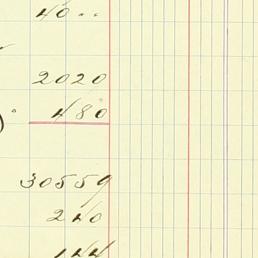 40 ..
2020
480
30559
240
144